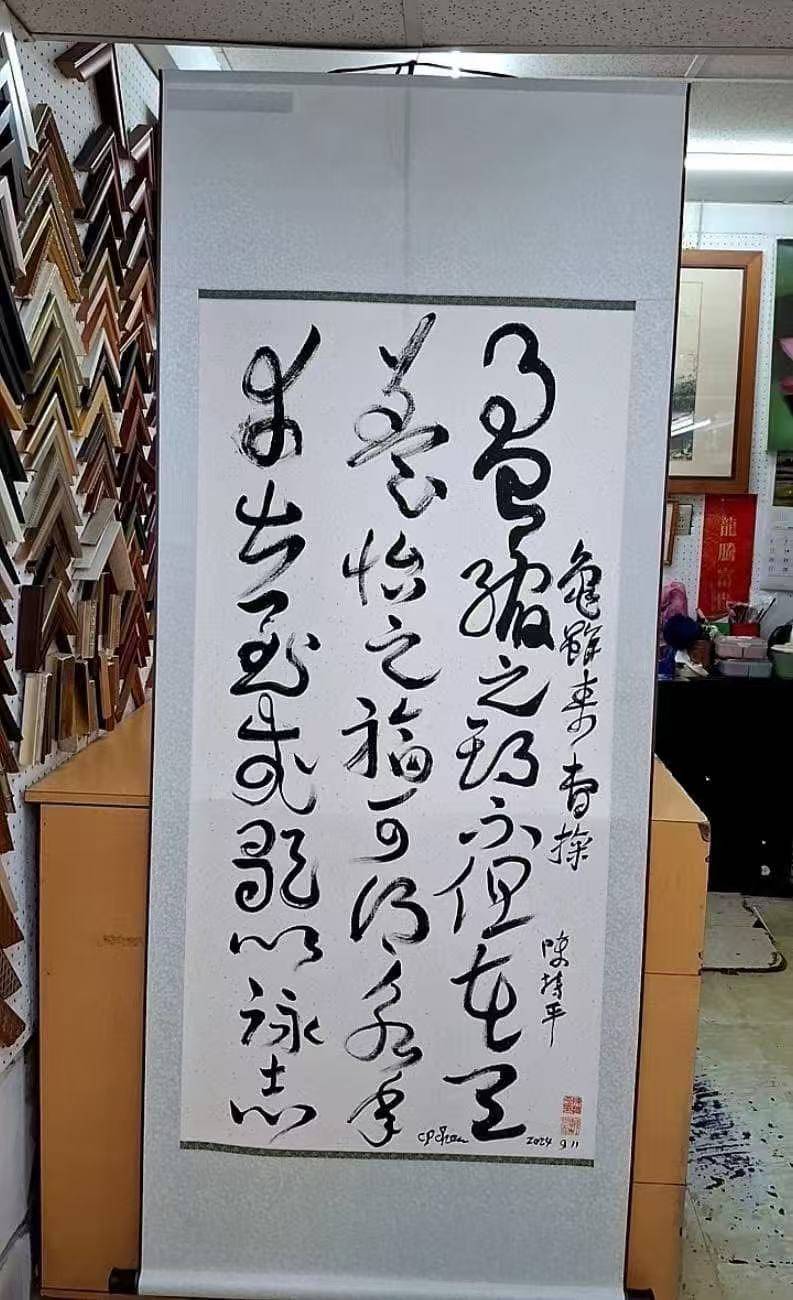 龜雖壽 曹操
陳持平
盈縮之期不但在天
養怡之福可得永年
幸甚至哉歌以詠志
2024 9.11
龍騰